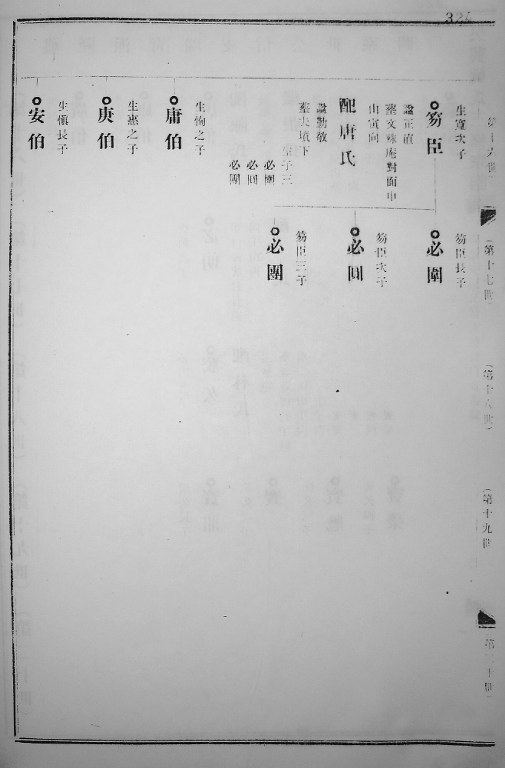 324
第十六世
第十七世
第十八世
第十九世
第二十世
生寬次子
芴臣
諡正直
葬文殊庵對面申
山寅向
配唐氏
諡勤敬
葬尖墳下
生子三
必圍
必圓
必團
生恂之子
庸伯
生惠之子
庚伯
生慎長子
安伯
芴臣長子
必圍
芴臣次子
必圓
芴臣三子
必團